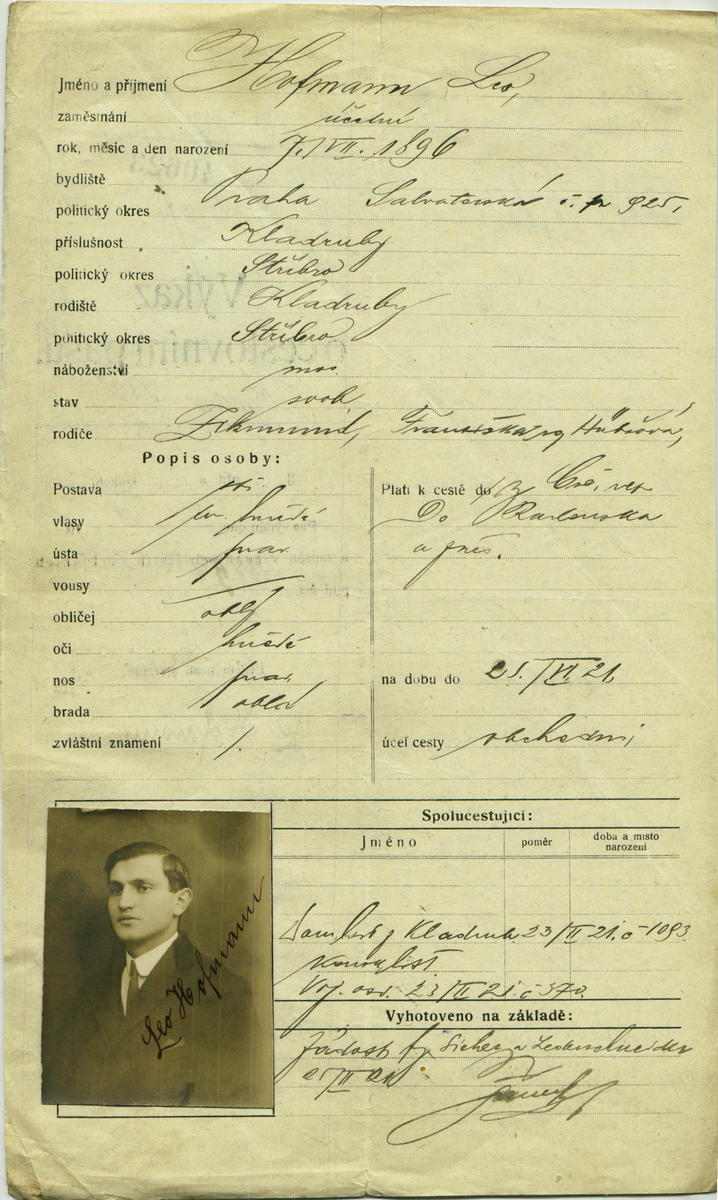 Jméno a příjmení Hofmann Leo,
zaměstnání účetní
rok, měsíc a den narození 7./VII. 1896
bydliště
politický okres Praha Salvatorská č. p 925,
příslušnost Kladruby
politický okres Stříbro
rodiště Kladruby
politický okres Stříbro
náboženství mos.
stav svob
rodiče Zikmund, Františka Hübšová,
Popis osoby:
Postava stř.
vlasy tm. hnědé
ústa prav.
vousy
obličej oblý
oči hnědé
nos prav.
brada oblá
zvláštní znamení /.
Platí k cestě do
Do Rakouska
a
na dobu do 25./VI. 21
účel cesty obchodní
Spolucestující:
Jméno poměr doba a místo narození
Dom. list z Kladrub 23/II 21. č 1093
23/II 21. č 370.
Vyhotoveno na základě:
žádost fy Sicher a Lederschneider
25/II 21
Leo Hofmann